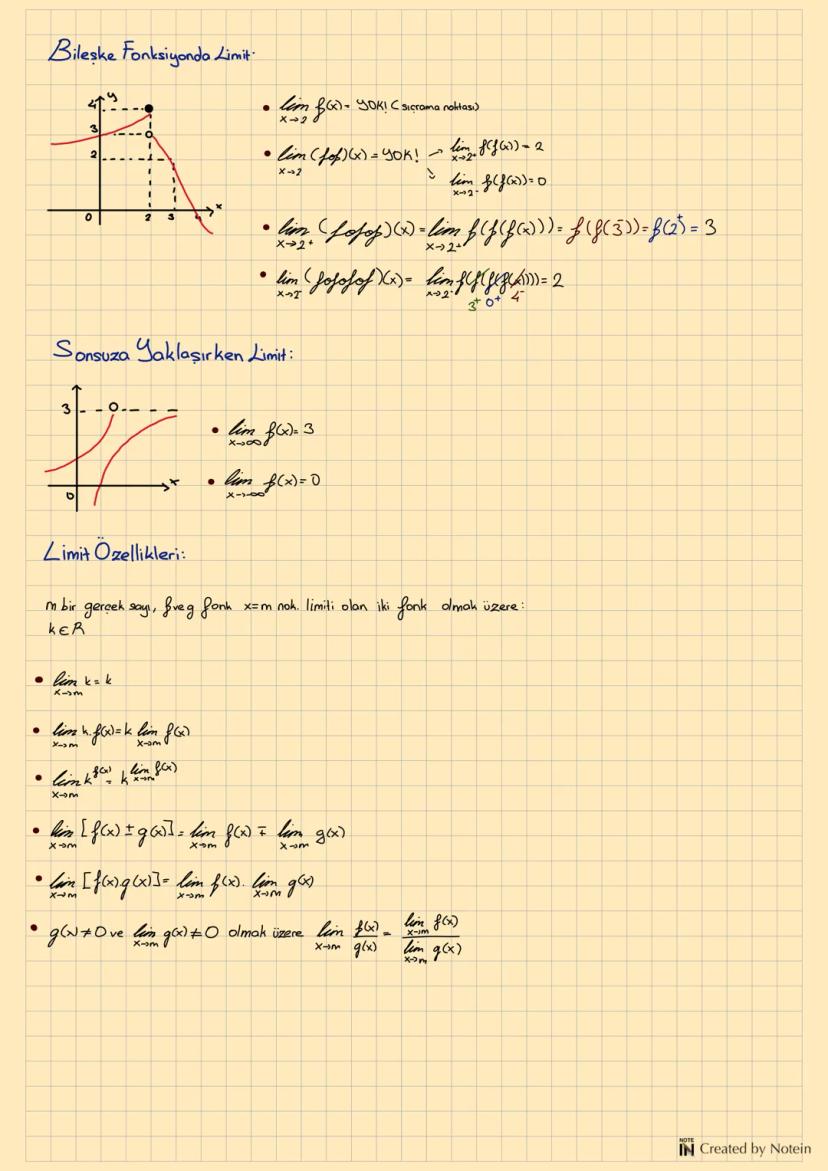 Bileşke Fonksiyonda Limit
y
4
3
2
0 2 3 4 x
• lim x→2 f(x) = YOK! (sıçrama noktası)
• lim x→2 (fof)(x) = YOK! → lim x→2⁺ f(f(x)) = 2
lim x→2⁻ f(f(x)) = 0
• lim x→2⁺ (fofof)(x) = lim x→2⁺ f(f(f(x))) = f(f(3⁻)) = f(2⁺) = 3
• lim x→2⁻ (fofofof)(x) = lim x→2⁻ f(f(f(f(x)))) = 2
3⁺ 0⁺ 4⁻
Sonsuza Yaklaşırken Limit:
3
0 x
• lim x→∞ f(x) = 3
• lim x→-∞ f(x) = 0
Limit Özellikleri:
m bir gerçek sayı, f ve g fonk x=m nok. limiti olan iki fonk olmak üzere:
k∈R
• lim x→m k = k
• lim x→m k.f(x) = k lim x→m f(x)
• lim x→m k^f(x) = k^lim x→m f(x)
• lim x→m [f(x) ± g(x)] = lim x→m f(x) ∓ lim x→m g(x)
• lim x→m [f(x).g(x)] = lim x→m f(x). lim x→m g(x)
• g(x) ≠ 0 ve lim x→m g(x) ≠ 0 olmak üzere lim x→m f(x)/g(x) = lim x→m f(x) / lim x→m g(x)
NOTE IN Created by Notein